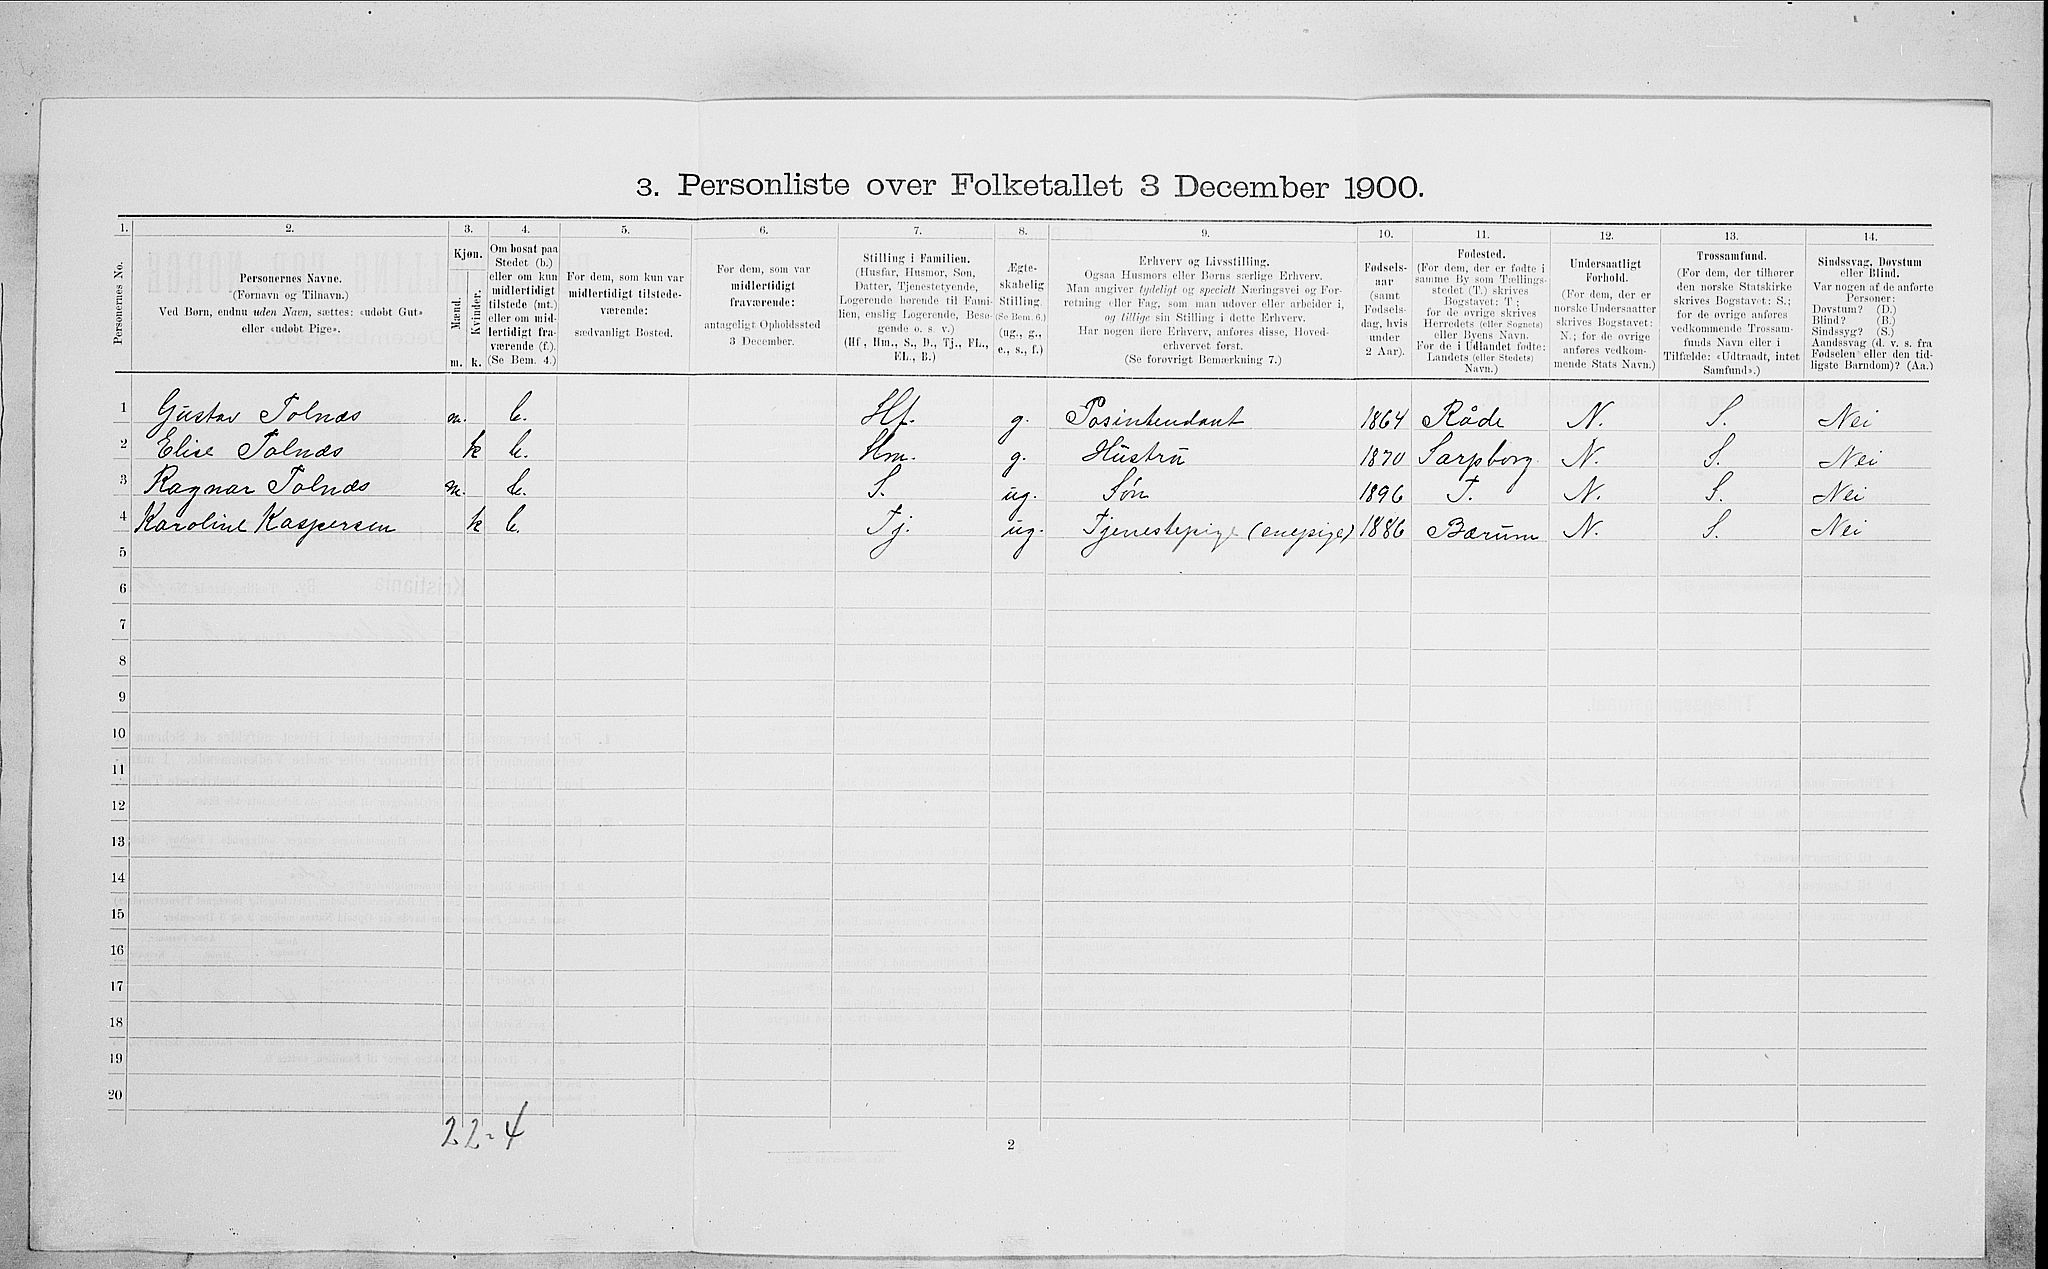 3. Personliste over Folketallet 3 December 1900.
1. 2. 3. 4. 5. 6. 7. 8. 9. 10. 11. 12. 13. 14.
Personernes No.
Personernes Navne.
(Fornavn og Tilnavn.)
Ved Børn, endnu uden Navn, sættes: «udøbt Gut»
eller «udøbt Pige».
Kjøn.
Mænd. Kvinder.
m. k.
Om bosat paa
Stedet (b.)
eller om kun
midlertidigt
tilstede (mt.)
eller om mid-
lertidigt fra-
værende (f.).
(Se Bem. 4.)
For dem, som kun var
midlertidigt tilstede-
værende:
sædvanligt Bosted.
For dem, som var
midlertidigt
fraværende:
antageligt Opholdssted
3 December.
Stilling i Familien.
(Husfar, Husmor, Søn,
Datter, Tjenestetyende,
Logerende hørende til Fami-
lien, enslig Logerende, Besø-
gende o. s. v.)
(Hf., Hm., S., D., Tj., FL.,
EL., B.)
Ægte-
skabelig
Stilling.
(Se Bem. 6.)
(ug., g.,
e., s., f.)
Erhverv og Livsstilling.
Ogsaa Husmors eller Børns særlige Erhverv.
Man angiver tydeligt og specielt Næringsvei og For-
retning eller Fag, som man udøver eller arbeider i,
og tillige sin Stilling i dette Erhverv.
Har nogen flere Erhverv, anføres disse, Hoved-
erhvervet først.
(Se forøvrigt Bemærkning 7.)
Fødsels-
aar
(samt
Fødsels-
dag, hvis
under
2 Aar).
Fødested.
(For dem, der er fødte i
samme By som Tællings-
stedet (T.) skrives
Bogstavet: T;
for de øvrige skrives
Herredets (eller Sognets)
eller Byens Navn.
For de i Udlandet fødte:
Landets (eller Stedets)
Navn.)
Undersaatligt
Forhold.
(For dem, der er
norske Undersaatter
skrives Bogstavet:
N.; for de øvrige
anføres vedkom-
mende Stats Navn.)
Trossamfund.
(For dem, der tilhører
den norske Statskirke
skrives Bogstavet: S.;
for de øvrige anføres
vedkommende Trossam-
funds Navn eller i
Tilfælde: «Udtraadt, intet
Samfund».)
Sindssvag, Døvstum
eller Blind.
Var nogen af de anførte
Personer:
Døvstum? (D.)
Blind? (B.)
Sindssyg? (S.)
Aandssvag (d. v. s. fra
Fødselen eller den tid-
ligste Barndom)? (Aa.)
1 Gustav Tolnæs m. b. Hf. g. Pasintendant 1864 Råde N. S. Nei
2 Elise Tolnæs k b. Hm. g. Hustru 1870 Sarpborg N. S. Nei
3 Ragnar Tolnæs m. b. S. ug. Søn 1896 T. N. S. Nei
4 Karoline Kaspersen k b. Tj. ug. Tjenestepige (enepige) 1886 Bærum N. S. Nei
5
6
7
8
9
10
11
12
13
14
15
16
17
18
19
20
22-4
2